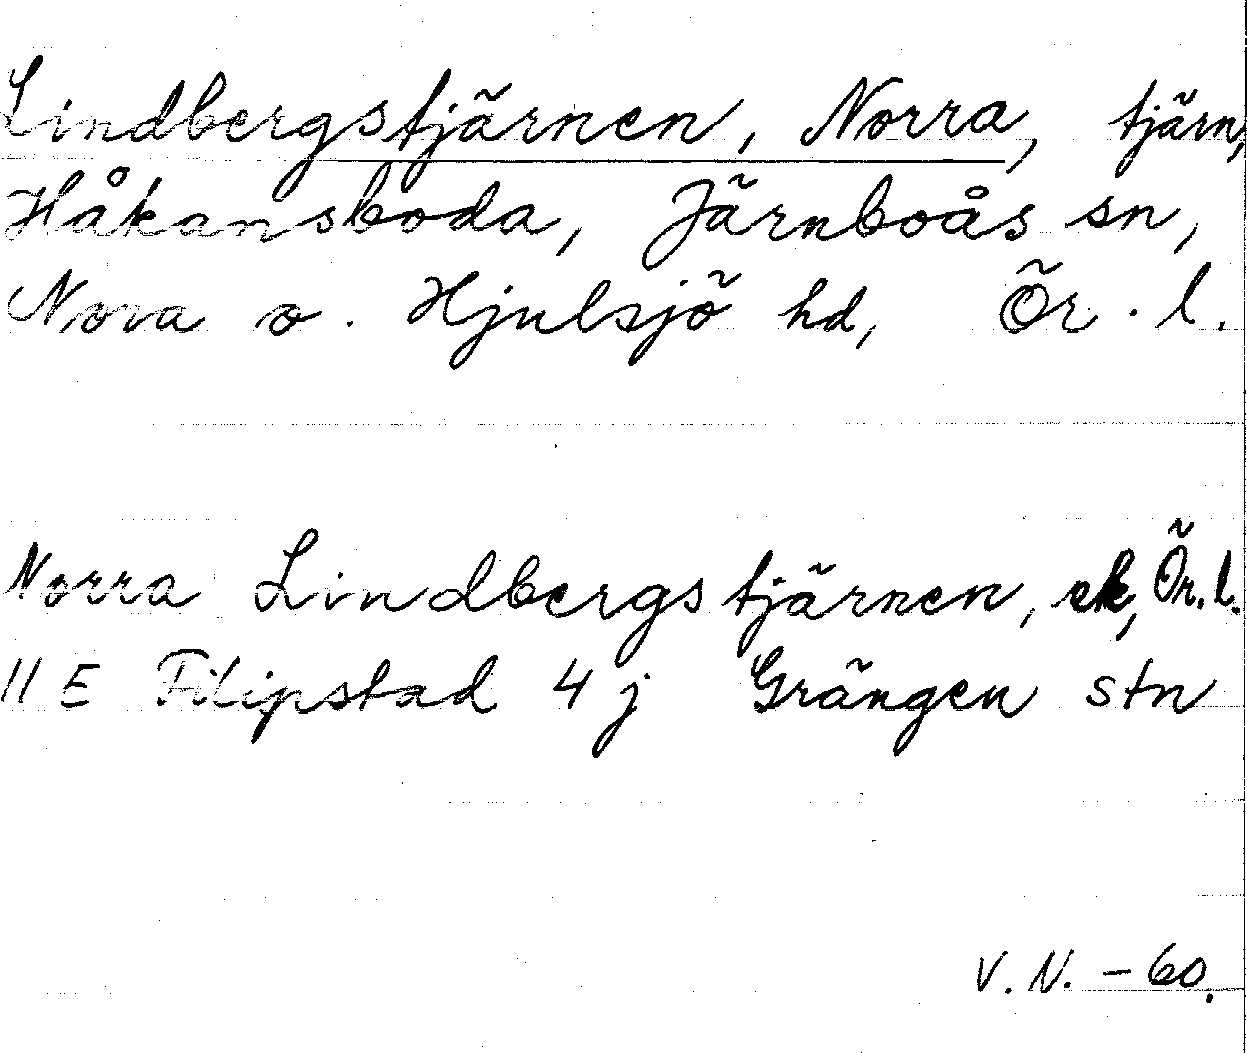 Lindbergstjärnen, Norra, tjärn,
Håkansboda, Järnboås sn,
Nora o. Hjulsjö hd, Ör. l.
Norra Lindbergstjärnen, ek, Ör. l.
11 E Filipstad 4 j Grängen stn
V. N. - 60.